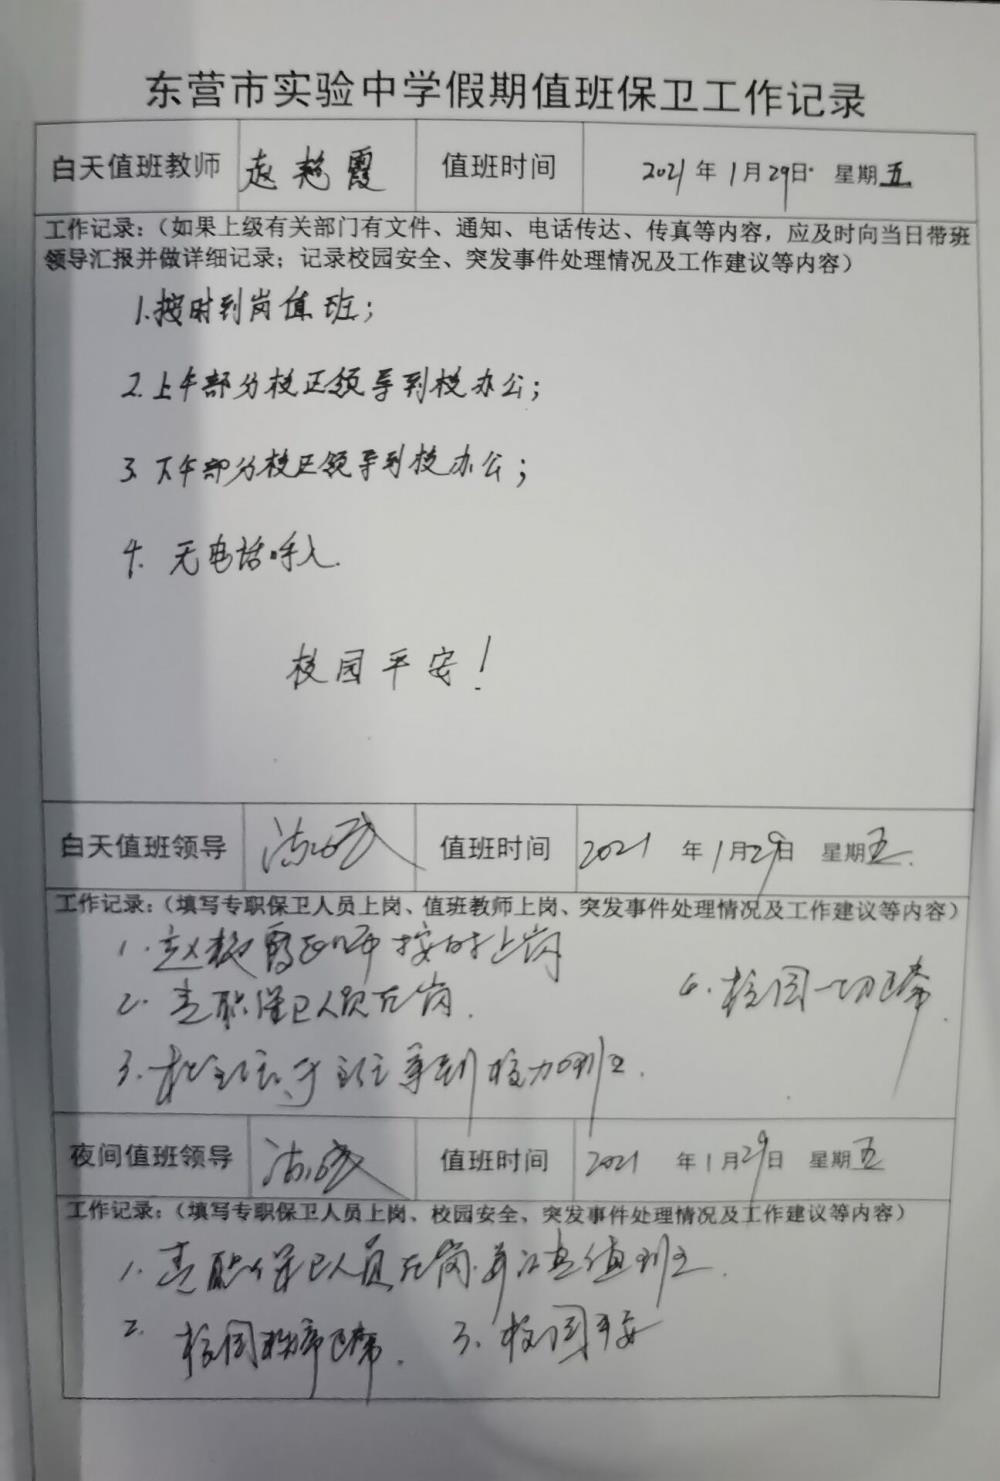 东营市实验中学假期值班保卫工作记录
白天值班教师 赵艳霞 值班时间 2021年1月29日 星期五
工作记录：（如果上级有关部门有文件、通知、电话传达、传真等内容，应及时向当日带班
领导汇报并做详细记录；记录校园安全、突发事件处理情况及工作建议等内容）
1.按时到岗值班；
2.上午部分校区领导到校办公；
3.下午部分校区领导到校办公；
4.无电话呼入.
校园平安！
白天值班领导 值班时间 2021年1月29日 星期五.
工作记录：（填写专职保卫人员上岗、值班教师上岗、突发事件处理情况及工作建议等内容）
1.赵艳霞老师按时上岗
2.专职保卫人员在岗. 4.校园一切正常.
3. 到校加班.
夜间值班领导 值班时间 2021年1月29日 星期五
工作记录：（填写专职保卫人员上岗、校园安全、突发事件处理情况及工作建议等内容）
1.专职保卫人员在岗.并认真值班.
2.校园秩序正常. 3.校园平安